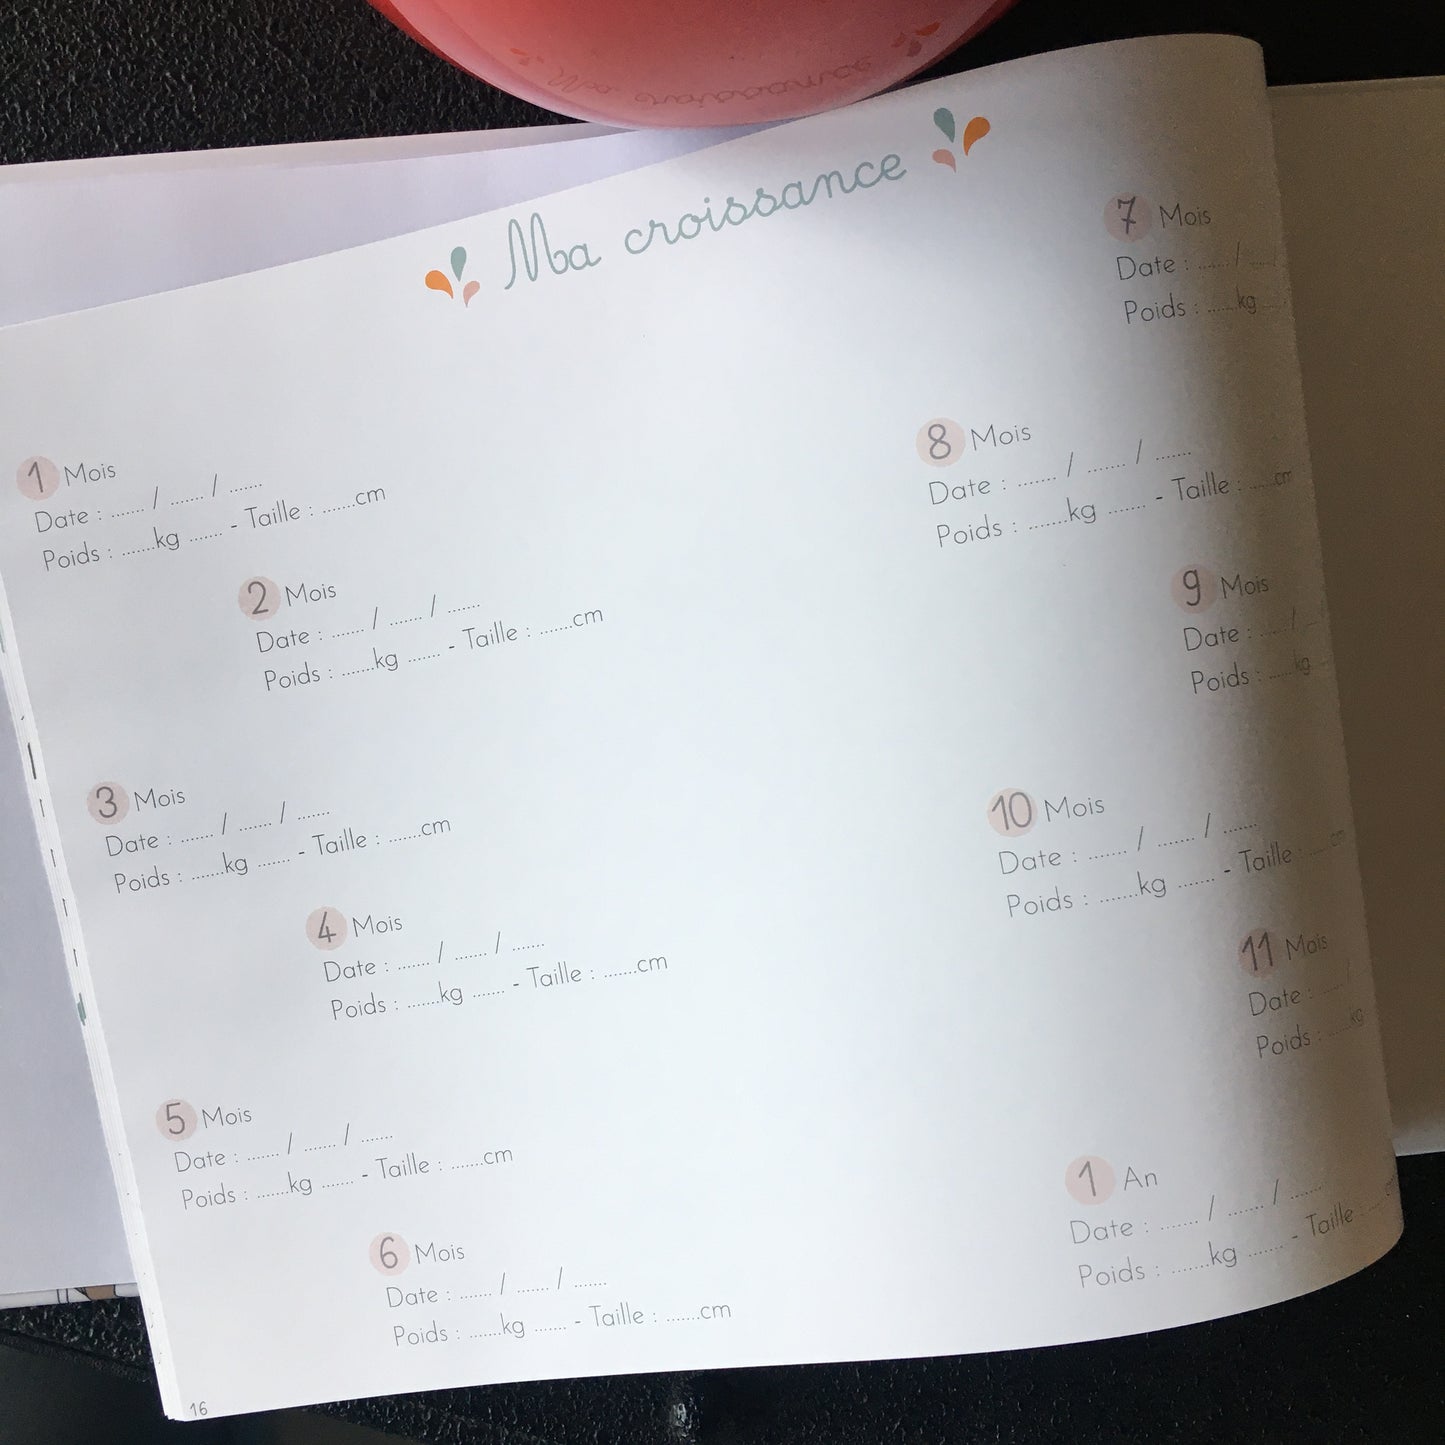 Ma croissance
1 Mois
Date : ....... / ....... / .......
Poids : .......kg ....... - Taille : .......cm
2 Mois
Date : ....... / ....... / .......
Poids : .......kg ....... - Taille : .......cm
3 Mois
Date : ....... / ....... / .......
Poids : .......kg ....... - Taille : .......cm
4 Mois
Date : ....... / ....... / .......
Poids : .......kg ....... - Taille : .......cm
5 Mois
Date : ....... / ....... / .......
Poids : .......kg ....... - Taille : .......cm
6 Mois
Date : ....... / ....... / .......
Poids : .......kg ....... - Taille : .......cm
7 Mois
Date : ....... / .......
Poids : .......kg
8 Mois
Date : ....... / ....... / .......
Poids : .......kg ....... - Taille : .......cm
9 Mois
Date : ....... /
Poids : .......kg
10 Mois
Date : ....... / ....... / .......
Poids : .......kg ....... - Taille : .......cm
11 Mois
Date : ....... /
Poids : .......kg
1 An
Date : ....... / ....... / .......
Poids : .......kg ....... - Taille : .......
16